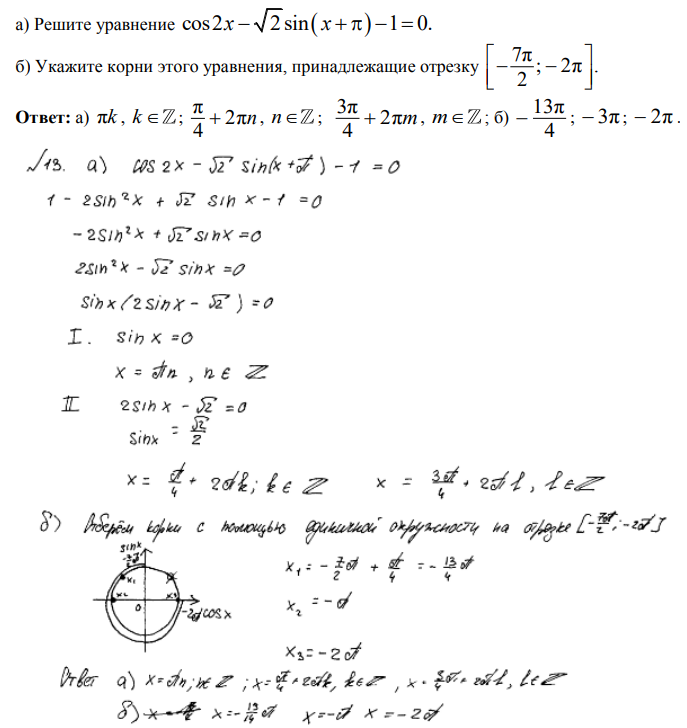 а) Решите уравнение cos2x − √2 sin(x + π) − 1 = 0.
б) Укажите корни этого уравнения, принадлежащие отрезку [−7π/2; −2π].
Ответ: а) πk, k ∈ ℤ; π/4 + 2πn, n ∈ ℤ; 3π/4 + 2πm, m ∈ ℤ; б) −13π/4; −3π; −2π.
√13. а) cos 2x − √2 sin(x + π) − 1 = 0
1 − 2sin²x + √2 sin x − 1 = 0
−2sin²x + √2 sinx = 0
2sin²x − √2 sinx = 0
sinx(2sinx − √2) = 0
I. sin x = 0
x = πn, n ∈ ℤ
II 2sinx − √2 = 0
sinx = √2/2
x = π/4 + 2πk; k ∈ ℤ x = 3π/4 + 2πl, l ∈ ℤ
б) Отберём корни с помощью единичной окружности на отрезке [−7π/2; −2π]
sinx
−7π/2
x₁
x₂ 0 x₃
−2π cosx
x₁ = −7/2π + π/4 = −13/4π
x₂ = −π
x₃ = −2π
Ответ а) x = πn; n ∈ ℤ; x = π/4 + 2πk, k ∈ ℤ, x = 3/4π + 2πl, l ∈ ℤ
б) x = −13/14π x = −π x = −2π